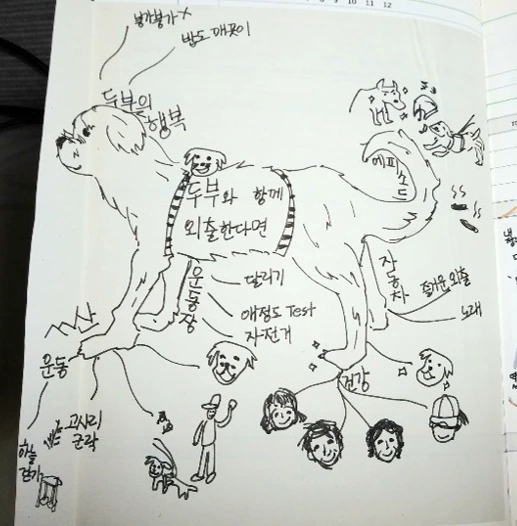 8 9 10 11 12
붕가붕가 X
밥도 깨끗이
두부의
행복
에피소드
두부와 함께
외출한다면
운동장
달리기
애정도 Test
자전거
자동차
즐거운 외출
노래
산
운동
고사리
군락
하늘
걷기
건강